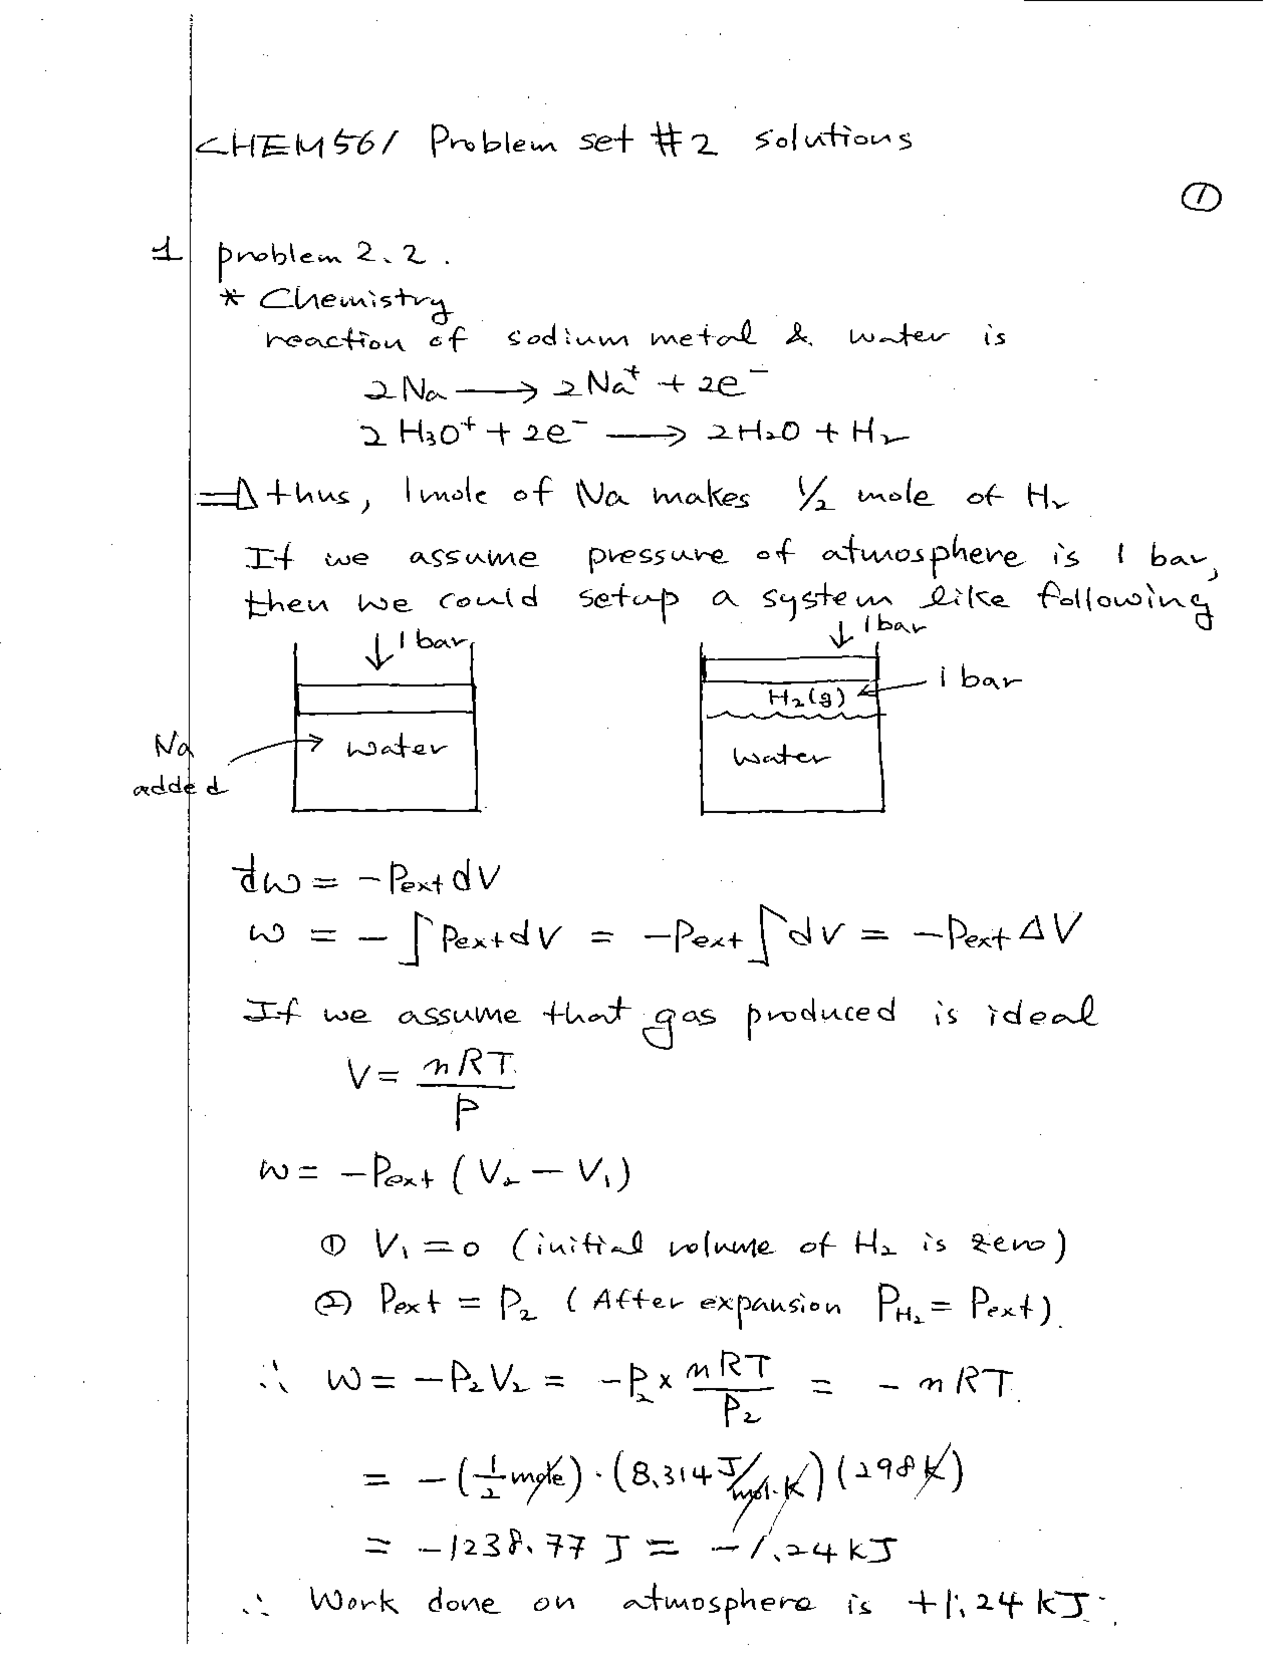 CHEM561 Problem set #2 solutions
①
1 problem 2.2.
* Chemistry
reaction of sodium metal & water is
2Na ⟶ 2Na⁺ + 2e⁻
2H₃O⁺ + 2e⁻ ⟶ 2H₂O + H₂
⇒ thus, 1 mole of Na makes ½ mole of H₂
If we assume pressure of atmosphere is 1 bar,
then we could setup a system like following
↓ 1 bar ↓ 1 bar
H₂(g) ← 1 bar
Na → water water
added
đw = -Pext dV
w = -∫Pext dV = -Pext∫dV = -Pext ΔV
If we assume that gas produced is ideal
V = nRT/P
w = -Pext (V₂ - V₁)
① V₁ = 0 (initial volume of H₂ is zero)
② Pext = P₂ (After expansion P_H₂ = Pext).
∴ w = -P₂V₂ = -P₂ × nRT/P₂ = -nRT.
= -(1/2 mole)·(8.314 J/mol·K)(298K)
= -1238.77 J = -1.24 kJ
∴ Work done on atmosphere is +1.24 kJ.